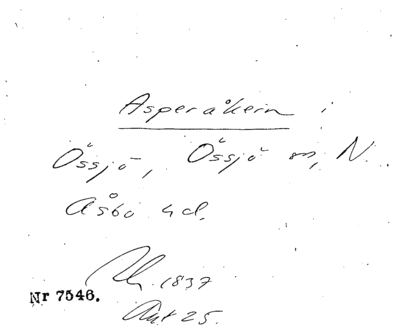 Asperåkern i
Össjö, Össjö sn, N.
Åsbo hd.
1837
Akt 25.
Nr 7546.